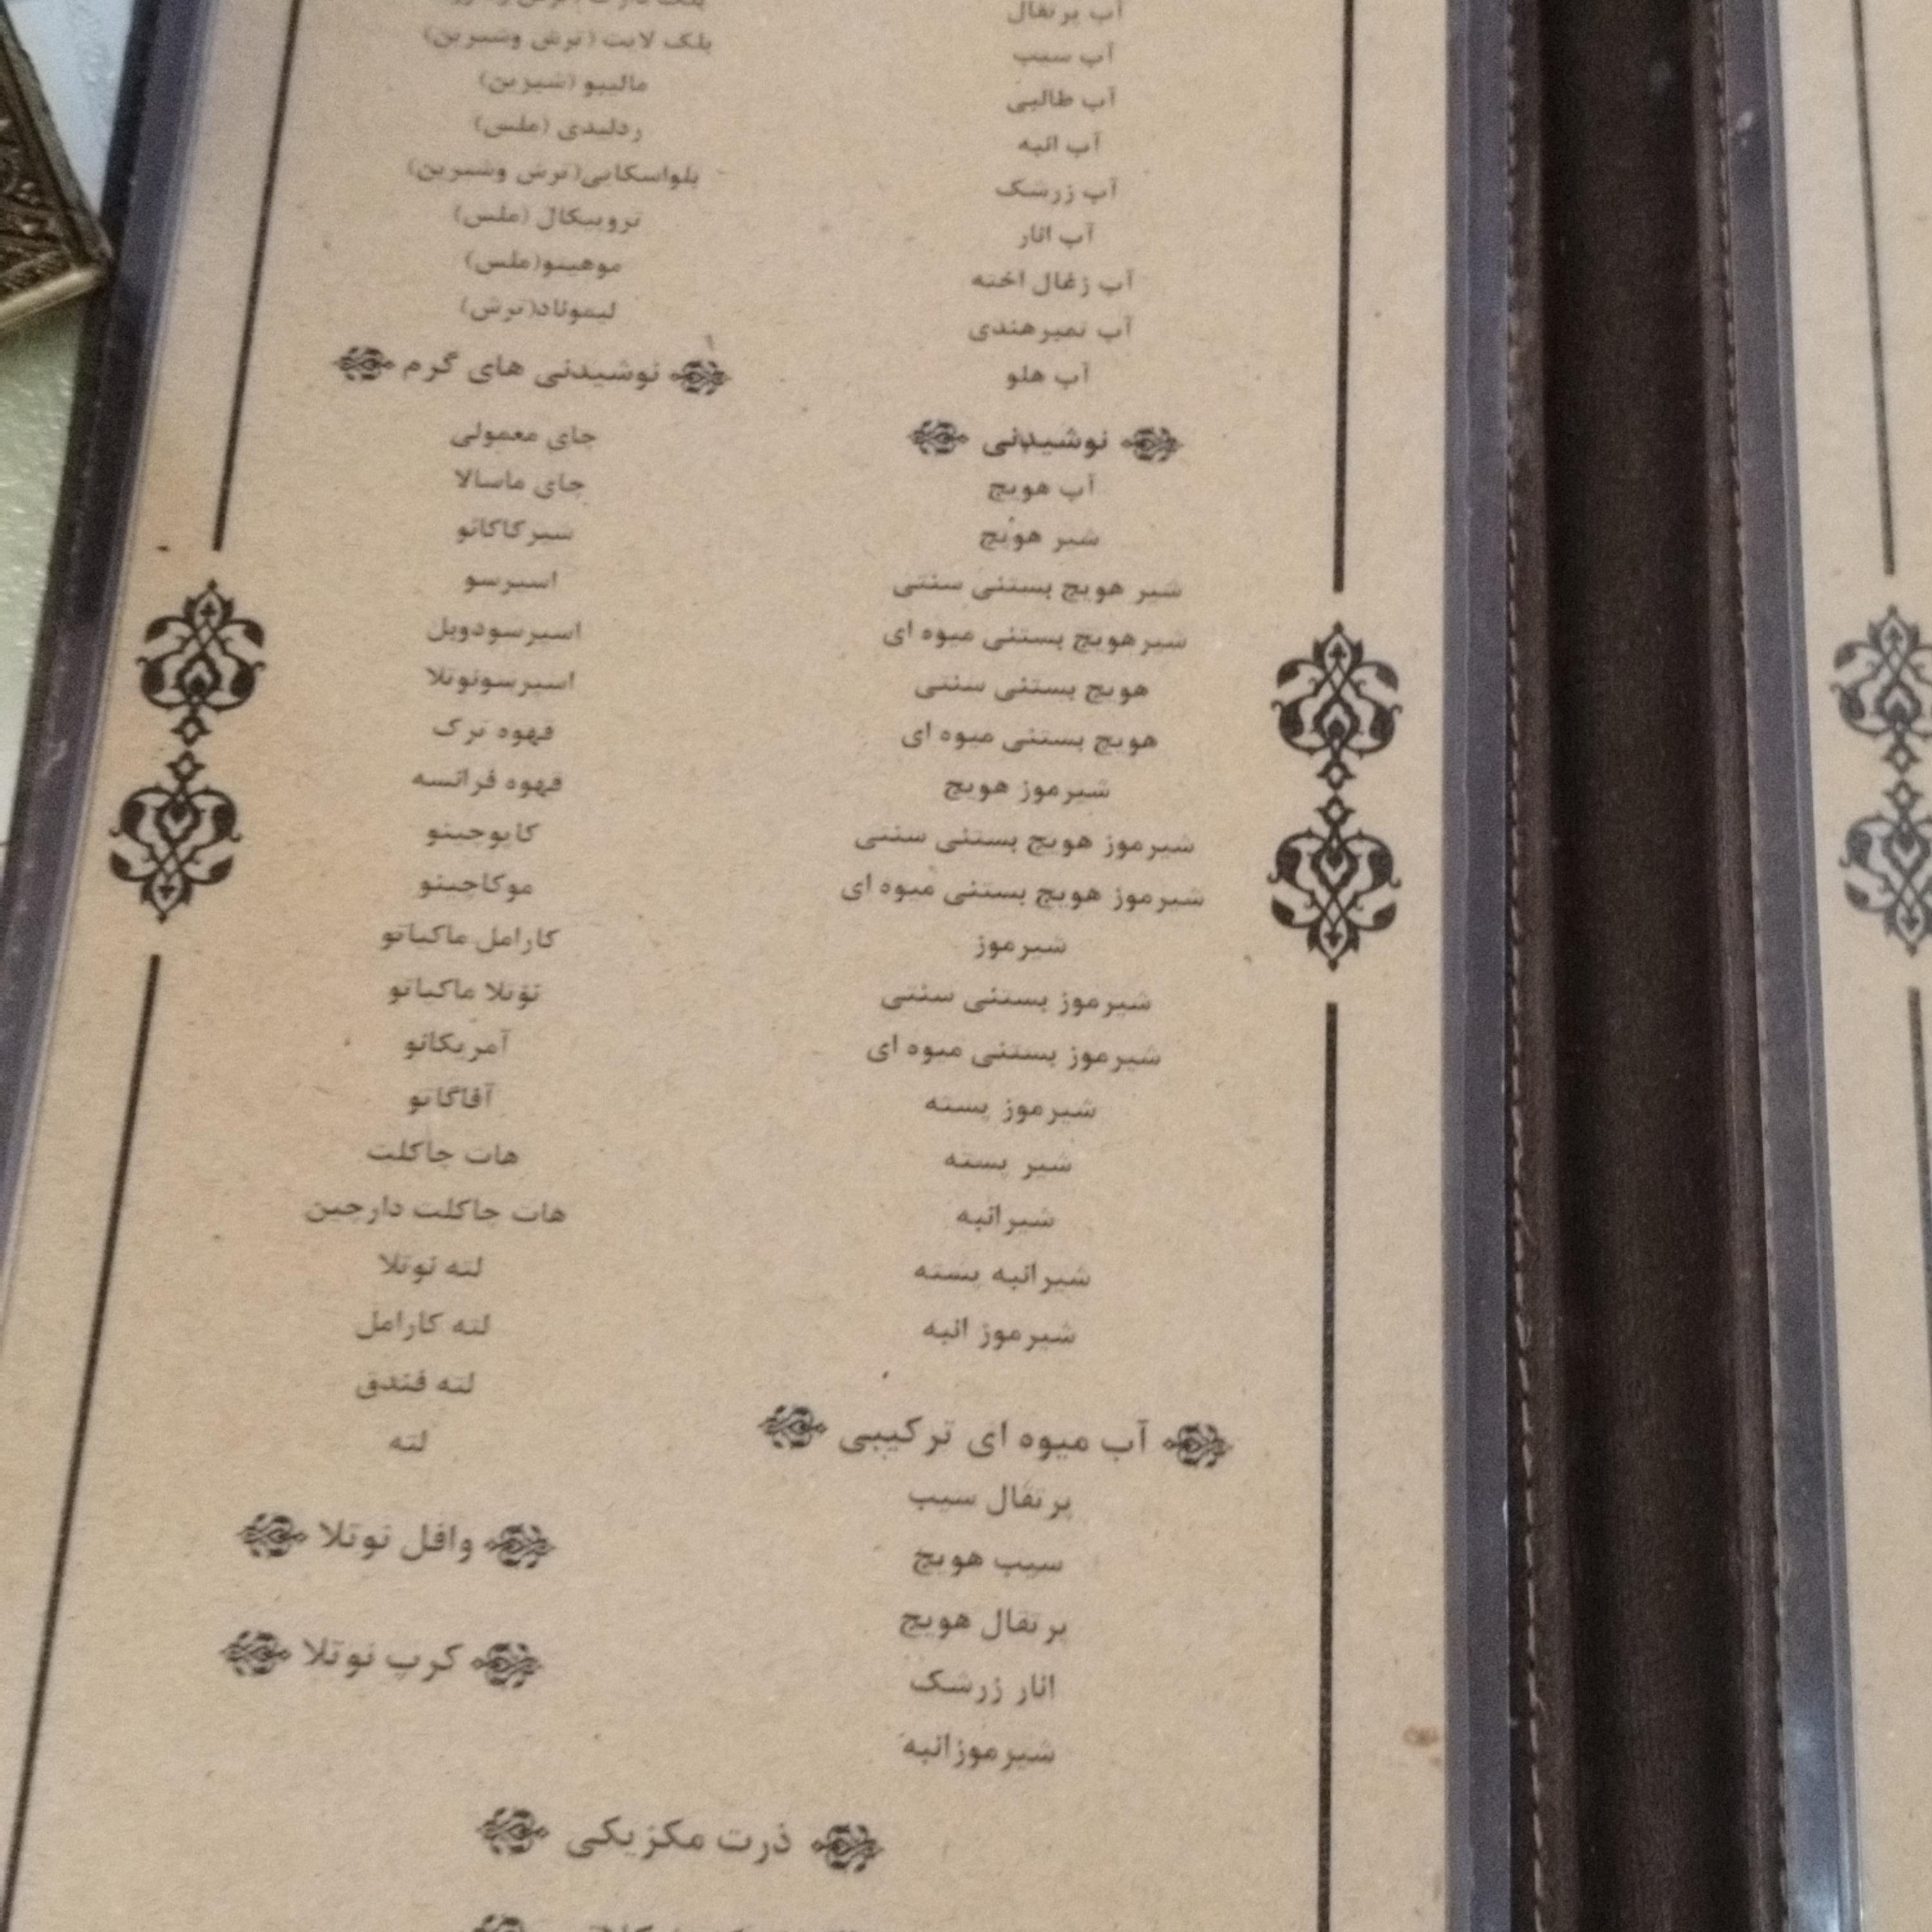 آب پرتقال
آب سیب
آب طالبی
آب انبه
آب زرشک
آب انار
آب زغال اخته
آب تمبرهندی
آب هلو
نوشیدنی
آب هویج
شیر هویج
شیر هویج بستنی سنتی
شیرهویج بستنی میوه ای
هویج بستنی سنتی
هویج بستنی میوه ای
شیرموز هویج
شیرموز هویج بستنی سنتی
شیرموز هویج بستنی میوه ای
شیرموز
شیرموز بستنی سنتی
شیرموز بستنی میوه ای
شیرموز پسته
شیر پسته
شیرانبه
شیرانبه پسته
شیرموز انبه
آب میوه ای ترکیبی
پرتقال سیب
سیب هویج
پرتقال هویج
انار زرشک
شیرموزانبه
بلک لایت (ترش وشیرین)
مالیبو (شیرین)
ردلیدی (ملس)
بلواسکایی(ترش وشیرین)
تروپیکال (ملس)
موهیتو(ملس)
لیموناد(ترش)
نوشیدنی های گرم
چای معمولی
چای ماسالا
شیرکاکائو
اسپرسو
اسپرسودوبل
اسپرسونوتلا
قهوه ترک
قهوه فرانسه
کاپوچینو
موکاچینو
کارامل ماکیاتو
نوتلا ماکیاتو
آمریکانو
آفاگاتو
هات چاکلت
هات چاکلت دارچین
لته نوتلا
لته کارامل
لته فندق
لته
وافل نوتلا
کرپ نوتلا
ذرت مکزیکی